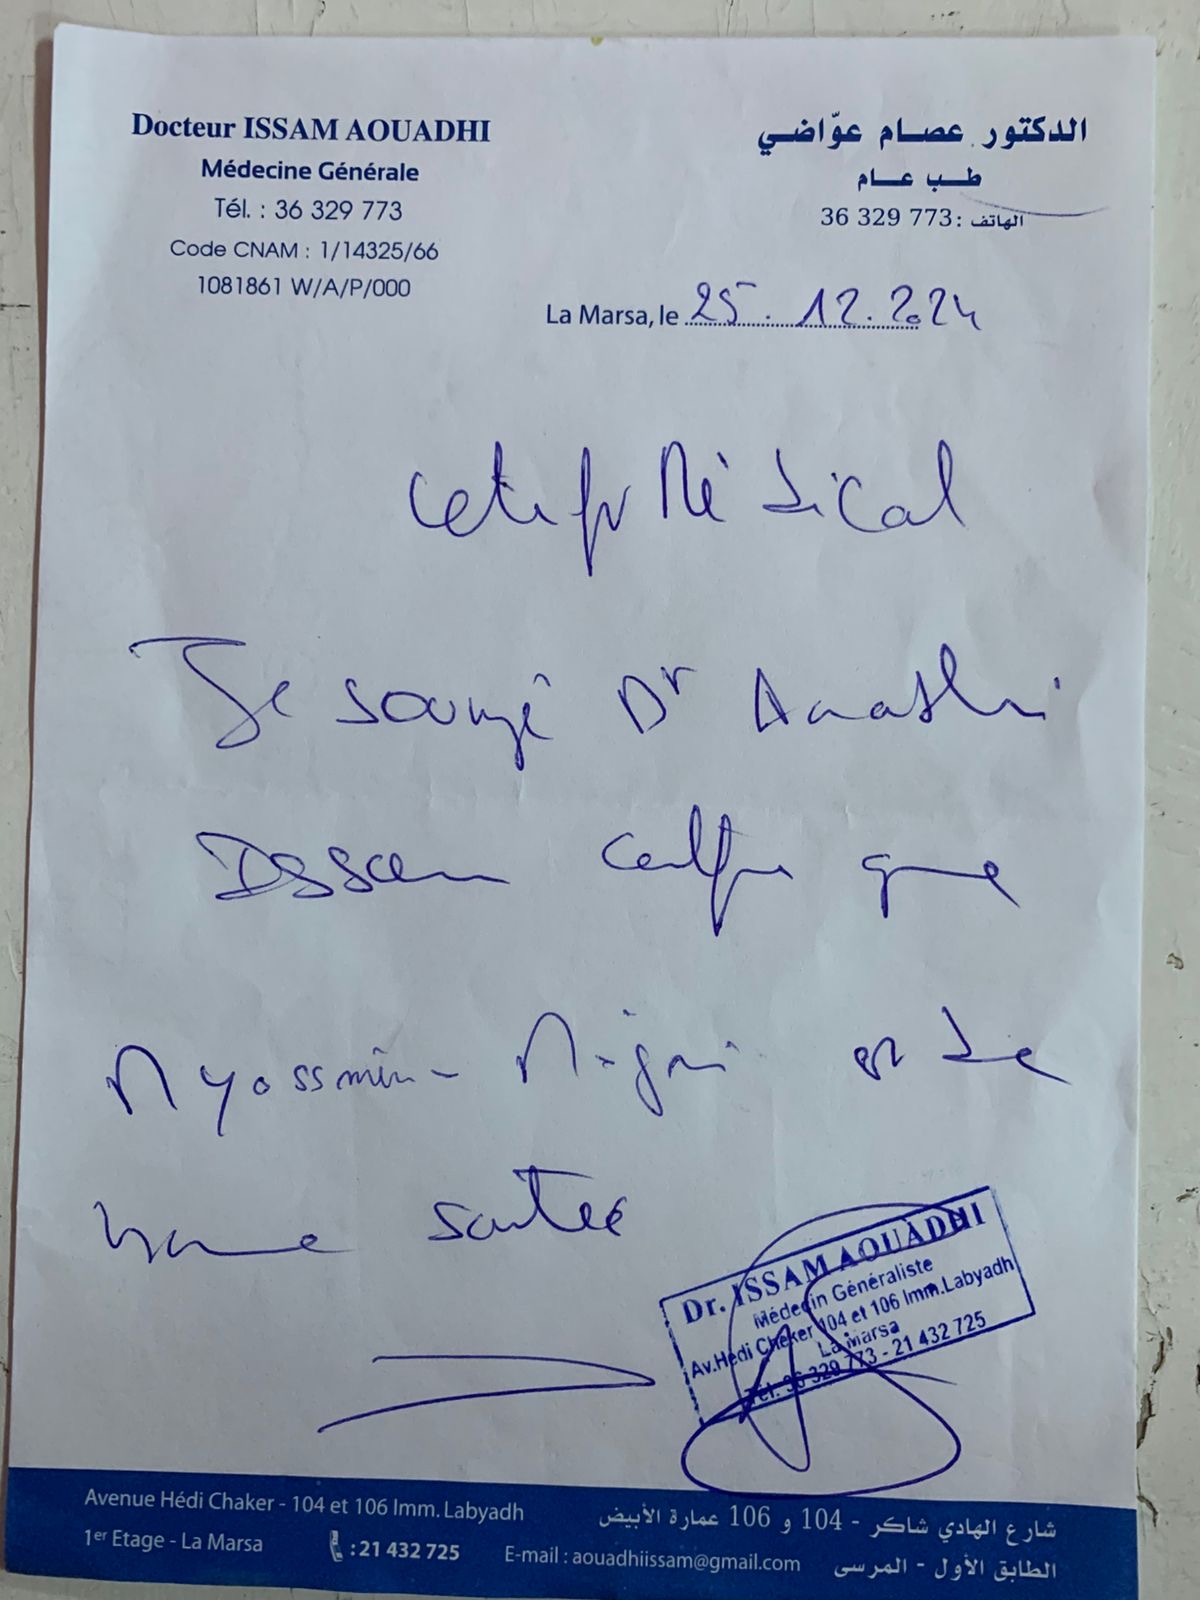 Docteur ISSAM AOUADHI
Médecine Générale
Tél. : 36 329 773
Code CNAM : 1/14325/66
1081861 W/A/P/000
الدكتور عصام عوّاضي
طب عام
الهاتف : 36 329 773
La Marsa, le 25.12.2024
Médical
Je soussigné Dr Aouadhi
Issam certifie que
Nyossmin Nigri est de
bonne santée
Dr. ISSAM AOUADHI
Médecin Généraliste
Av.Hédi Cheker 104 et 106 Imm.Labyadh
La Marsa
Tél. 36 329 773 - 21 432 725
Avenue Hédi Chaker - 104 et 106 Imm. Labyadh
1er Etage - La Marsa : 21 432 725 E-mail : aouadhiissam@gmail.com
شارع الهادي شاكر - 104 و 106 عمارة الأبيض
الطابق الأول - المرسى